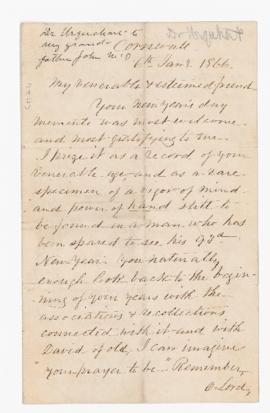 Dr Urquhart to
my grand-
father John McD
Dr Urquhart
Cornwall
6th Jany. 1866.
My venerable & esteemed friend
Your New Year's day
memento was most welcome
and most gratifying to me.
I prize it as a record of your
venerable age and as a rare
specimen of a vigor of mind
and power of hand still to
be found in a man who has
been spared to see his 93rd
New Year. You naturally
enough look back to the begin-
ning of your years with the
associations & recollections
connected with it and with
David of old, I can imagine
your prayer to be "Remember,
O Lord,